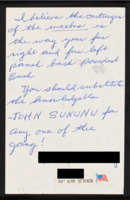 I believe the outrage
of the weeks is
the way your far
right and far left
panel bash President
Bush.
You should substitute
the knowledgable
JOHN SUNUNU for
any one of the
gang!